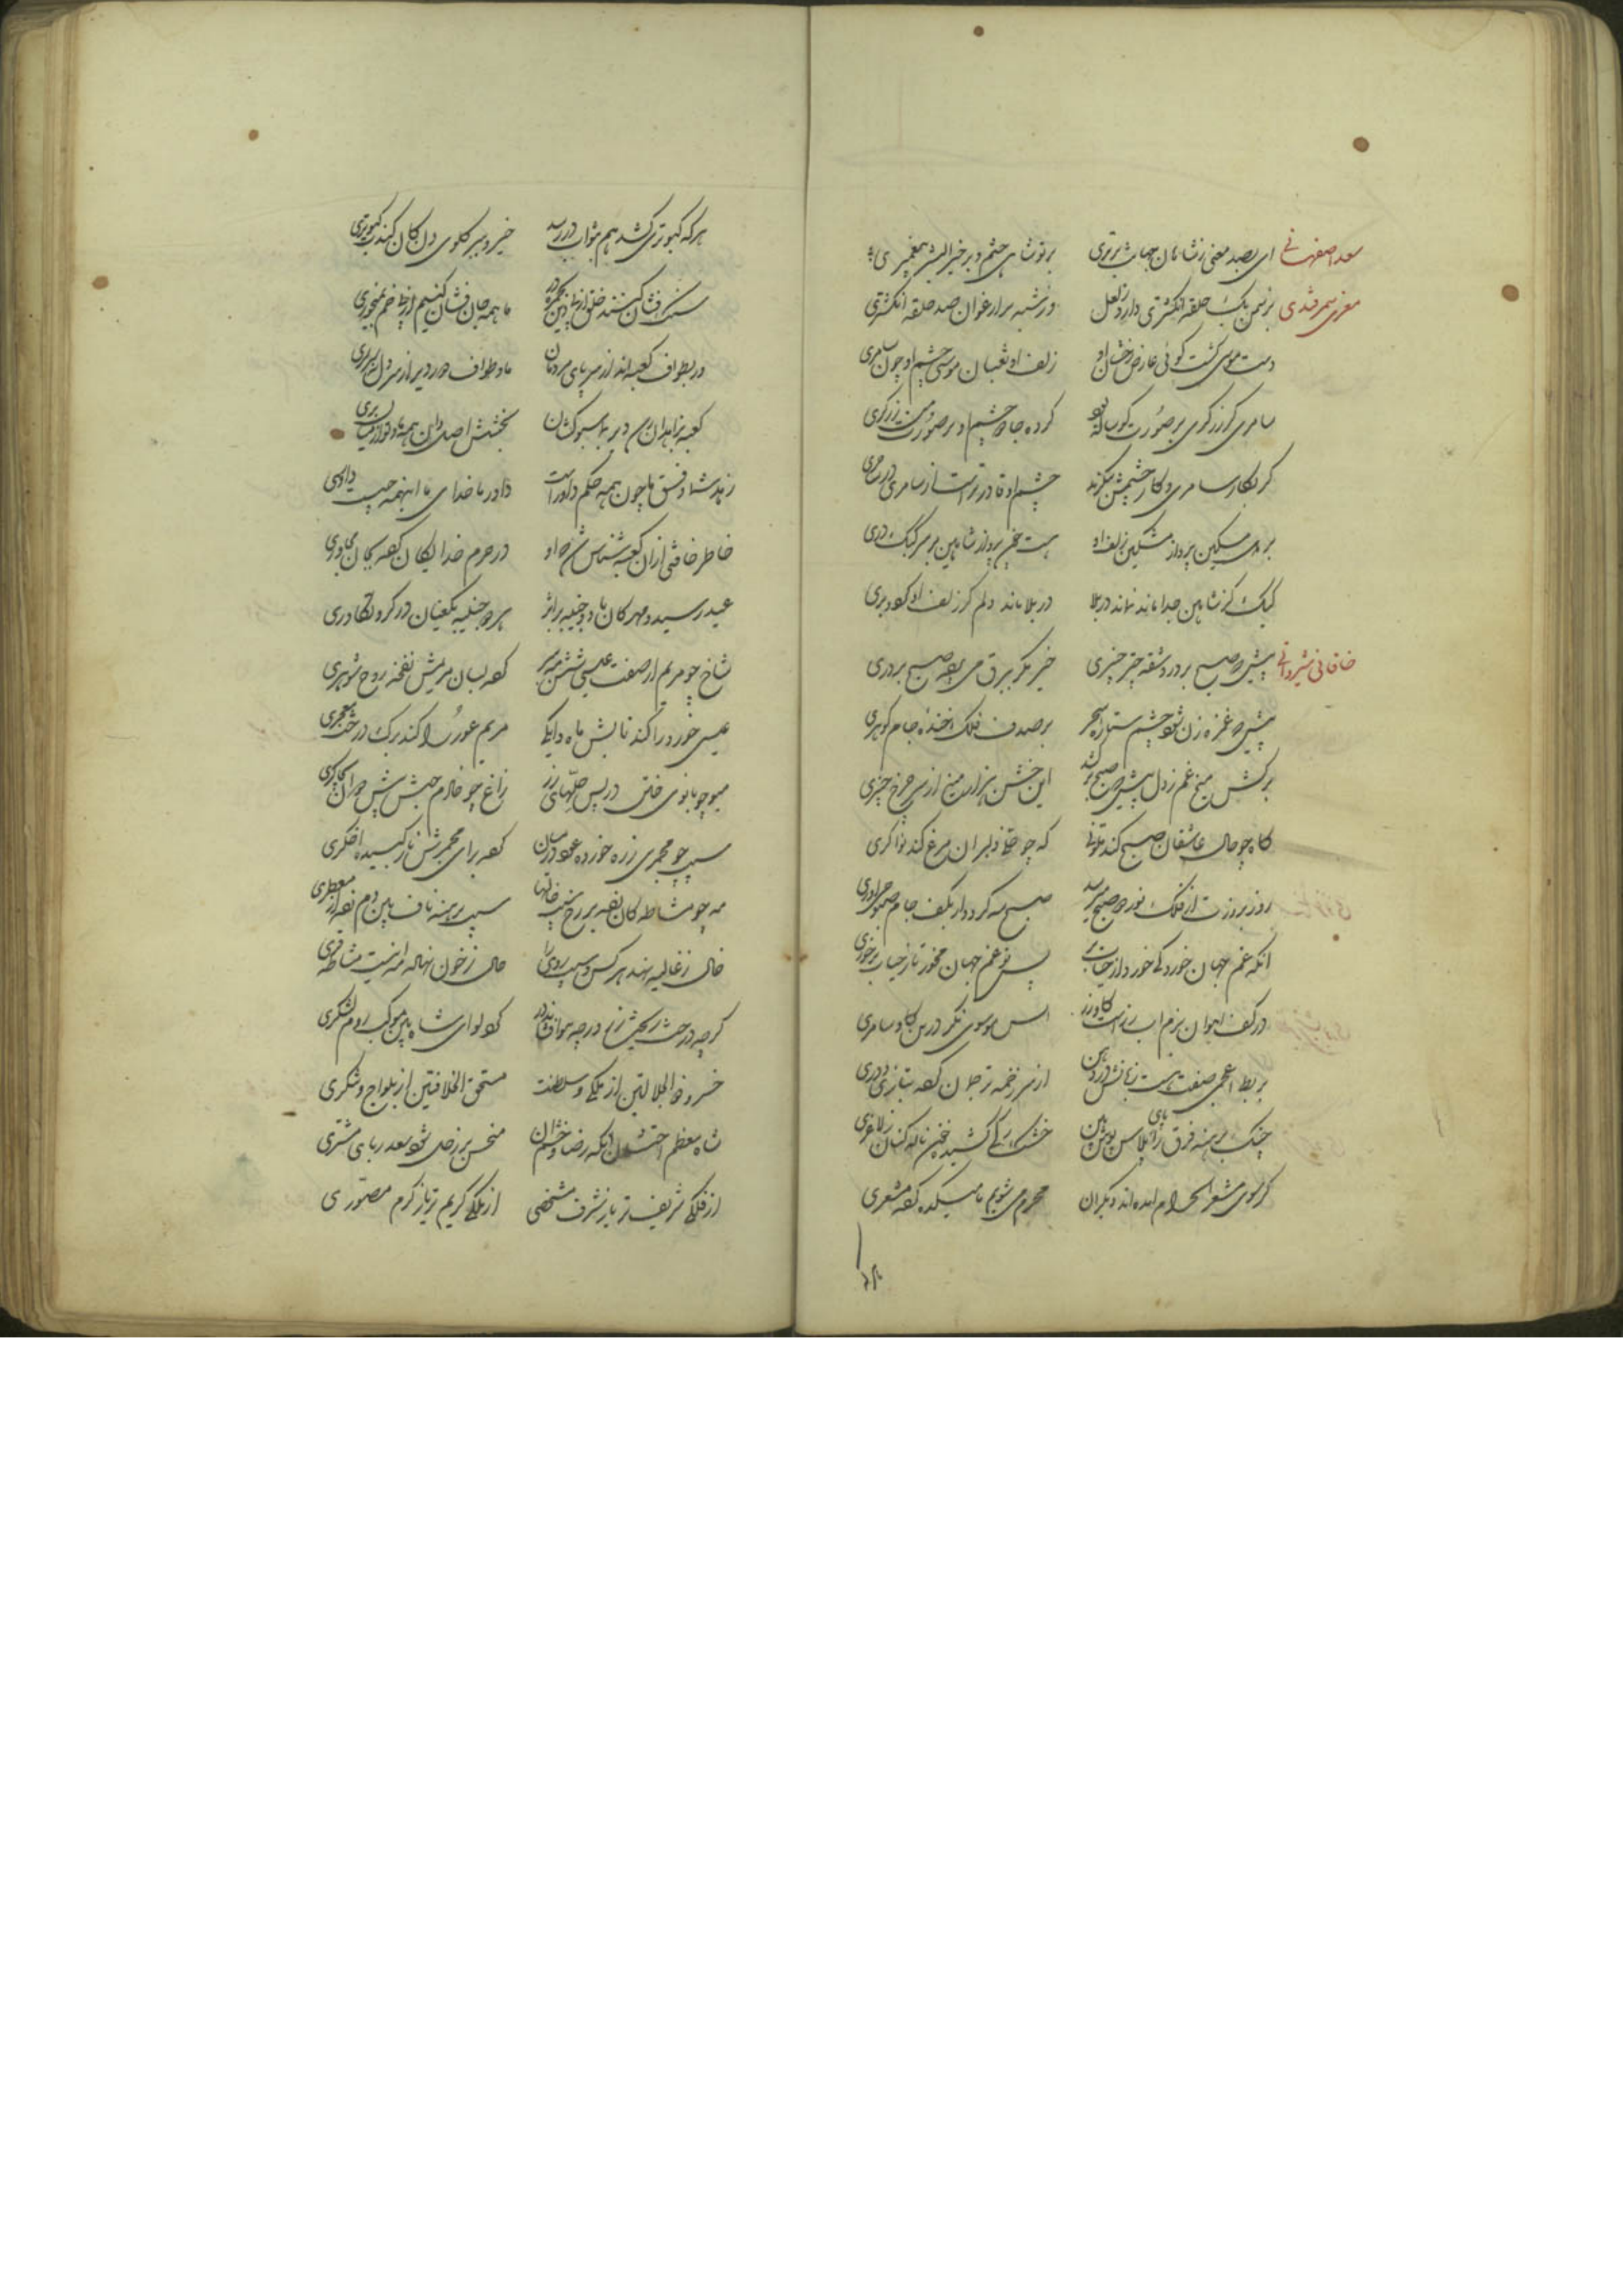 سعد اصفهانی ای بصد معنی ز شاهان جهانت برتری بر تو شاهی ختم و بر خیر البشر پیغمبری
معزی سمرقندی بر سمن یک حلقه انکشتری دارد ز لعل وز شبه بر ارغوان صد حلقه انکشتری
دست موسی کشت کوئی عارض رخشان او زلف او ثعبان موسی چشم او چون سامری
سامری کر زرکری بر صورت کوساله بود کرده جادو چشم او بر صورت من زرکری
کر بکار سامری و کار چشمش بنکرند چشم او قادرترست از سامری در ساحری
بر من مسکین پرواز مشکین زلف او هست پرواز شاهین بر سر کبک دری
کبک کز شاهین جدا ماند نماند در بلا در بلا ماند دلم کز زلف او کردد بری
خاقانی شیروانی پیش که صبح بردرد شقه چتر چنبری خیز مکر ببرق می برقع صبح بردری
پیش که غمزه زن شود چشم ستاره سحر بر صدف فلک رسان خنده جام کوهری
برکش میخ غم ز دل پیش که صبح برکشد این خشن هزار میخ از سر چرخ چنبری
کاه چو حال عاشقان صبح کند ملونی که چو حلی دلبران مرغ کند نواکری
روز بروزت از فلک نور دو صبح میرسد صبح سه کردد ار بکف جام صبوحی آوری
آنکه غم جهان خورد کی خورد از حیات بر پس تو غم جهان مخور تا ز حیات برخوری
در کف آهوان بزم آب رزست کاو زر آتش موسوی نکر در بر کاو سامری
بربط اعجمی صفت هشت زبانش در دهن از سر زخمه ترجمان کرده بتازی و دری
چنک برهنه فرق را پای پلاس پوش بین خشک رکی کشیده خون ناله کنان ز لاغری
کر سوی مشعر الحرام آمده اند دیکران محرم می شویم ما میکده کرده مشعری
هر که کبوتری کشد هم بثواب در رسد خیز و ببر کلوی دن کان کند کبوتری
سنک فشان کنند خلق از پی دین بجمره در ما همه جان فشان کنیم از پی خم بمی خوری
در بطواف کعبه اند از سر پای مردمان ما و طواف دیر از سر دل نه سرسری
کعبه بزاهدان رسد دیر بما سبوکشان بخشش اصل دان همه ما و تو از میان بری
زهد شما و فسق ما چون همه حکم داورست داور ما خدای ما اینهمه چیست داوری
خاطر خاقانی از آن کعبه شناس شد که او در حرم خدایکان کرده بجان مجاوری
عید رسید و مهرکان باد و جنیبه بر اثر هر دو جنیبه یکعنان در کرو تکاوری
شاخ چو مریم از صفت عیسی شش مهه ببر کرده بسان مریمش نفخه روح شوهری
عیسی خورد را کند تابش ماه دایکی مریم عور را کند برک درخت معجری
میوه چو بانوی ختن در پس حلهای زر زاغ چو خادم حبش پیش دوان بچاکری
سیب چو مجمری ز زر خرده عود در میان کرده برای مجمرش نار کفیده اخکری
مه چو مشاطکان زده بر رخ سیب خالها سیب برهنه ناف بین دم زده از معطری
خال ز غالیه نهند هر کس و سیب روی را خال ز خون نهاد مه اینت مشاطه فری
کرچه درخت ریخت زر ور چه هوا فشاند در کو لوای شاه بین موکب روم لشکری
خسرو ذو الجلالتین از ملکی و سلطنت مستحق الخلافتین از یلواج و سنکری
شاه معظم اخستان آنکه رضا و خشم او نحس بر زحل شود سعد ربای مشتری
از فلکی شریف تر باز شرف مشخصی از ملکی کریم تر باز کرم مصوری